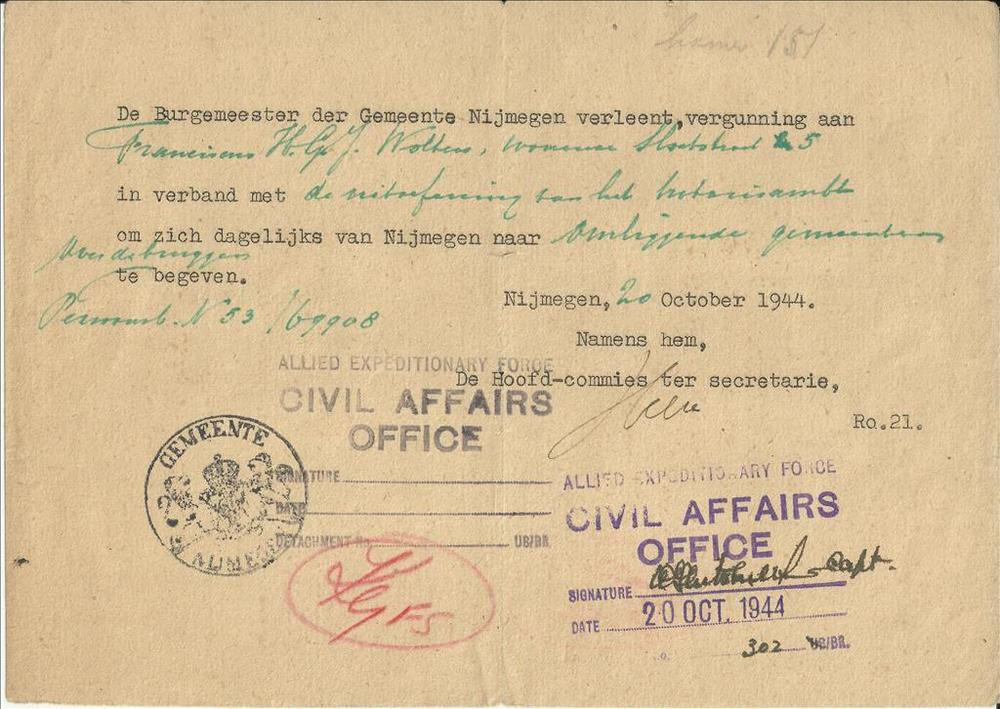 De Burgemeester der Gemeente Nijmegen verleent, vergunning aan
Franciscus H.G.J. Wolters, 5
in verband met de uitoefening van het notarisambt
om zich dagelijks van Nijmegen naar omliggende gemeenten
te begeven.
Nijmegen, 20 October 1944.
Persoonsb. N 53 /69908
Namens hem,
De Hoofd-commies ter secretarie,
Ro.21.
ALLIED EXPEDITIONARY FORCE
CIVIL AFFAIRS
OFFICE
SIGNATURE
DATE
DETACHMENT No. US/BR.
GEMEENTE
NIJMEGEN
FS
ALLIED EXPEDITIONARY FORCE
CIVIL AFFAIRS
OFFICE
SIGNATURE Capt.
DATE 20 OCT. 1944
302 US/BR.
151